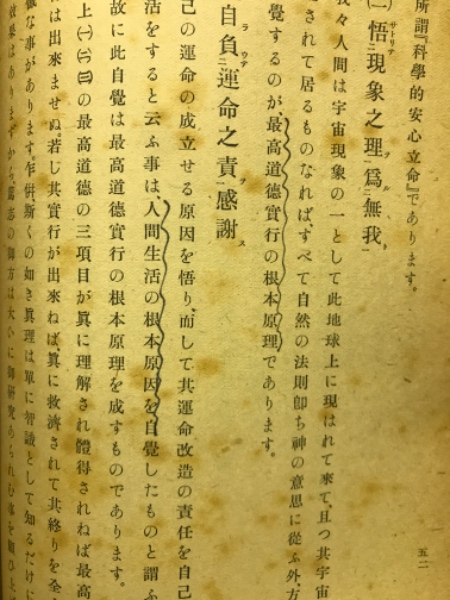 所謂『科學的安心立命』であります。
(二)悟現象之理爲無我
サトリテ ニ ヲ ル ト
我々人間は宇宙現象の一として此地球上に現はれて來て、且つ其宇宙
されて居るものなれば、すべて自然の法則卽ち神の意思に從ふ外、方
覺するのが、最高道德實行の根本原理であります。
自負運命之責感謝
ラ ウテ ニ ヲ ス
己の運命の成立せる原因を悟り、而して其運命改造の責任を自己
活をすると云ふ事は、人間生活の根本原因を自覺したものと謂ふ
故に此自覺は最高道德實行の根本原理を成すものであります。
上㈠㈡㈢の最高道德の三項目が眞に理解され體得されねば最高
は出來ませぬ。若し其實行が出來ねば、眞に救濟されて其終りを全
な事があります。乍併、斯くの如き眞理は單に智識として知るだけに
效果はありますから篤志の御方は大いに御研究
五二